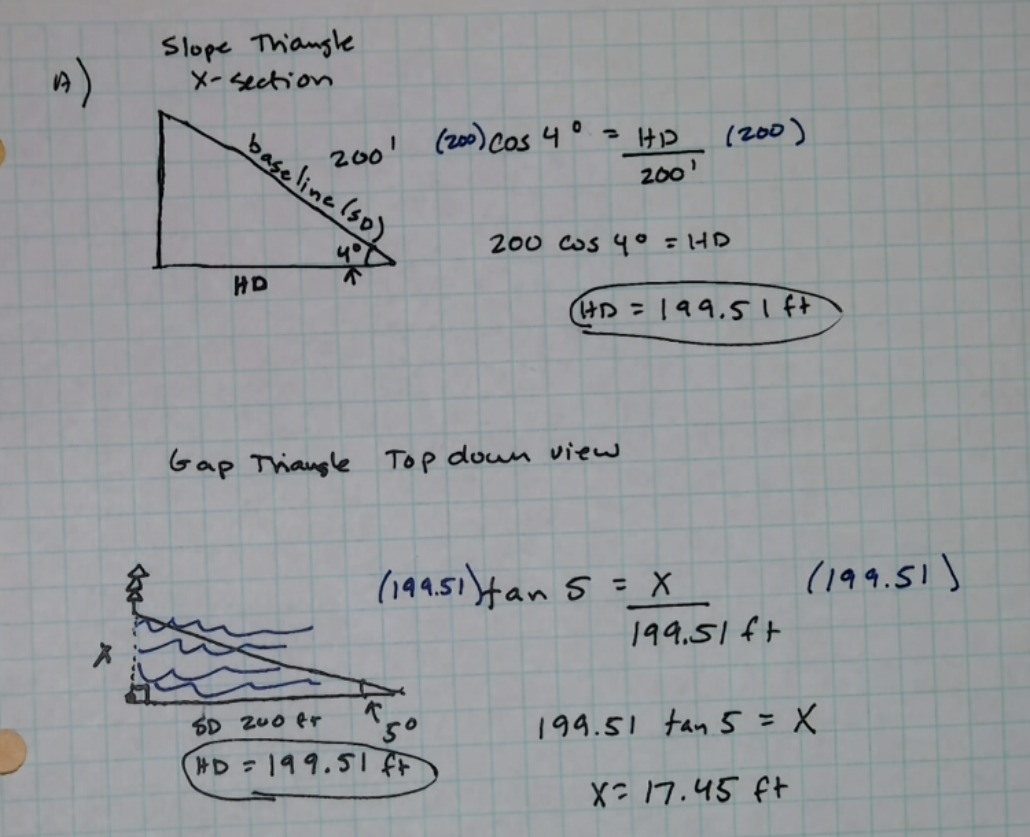 A)
Slope Triangle
X-section
baseline (SD)
200'
4°
HD
(200) cos 4° = HD/200' (200)
200 cos 4° = HD
HD = 199.51 ft
Gap Triangle Top down view
X
SD 200 ft
5°
HD = 199.51 ft
(199.51) tan 5 = X/199.51 ft (199.51)
199.51 tan 5 = X
X = 17.45 ft